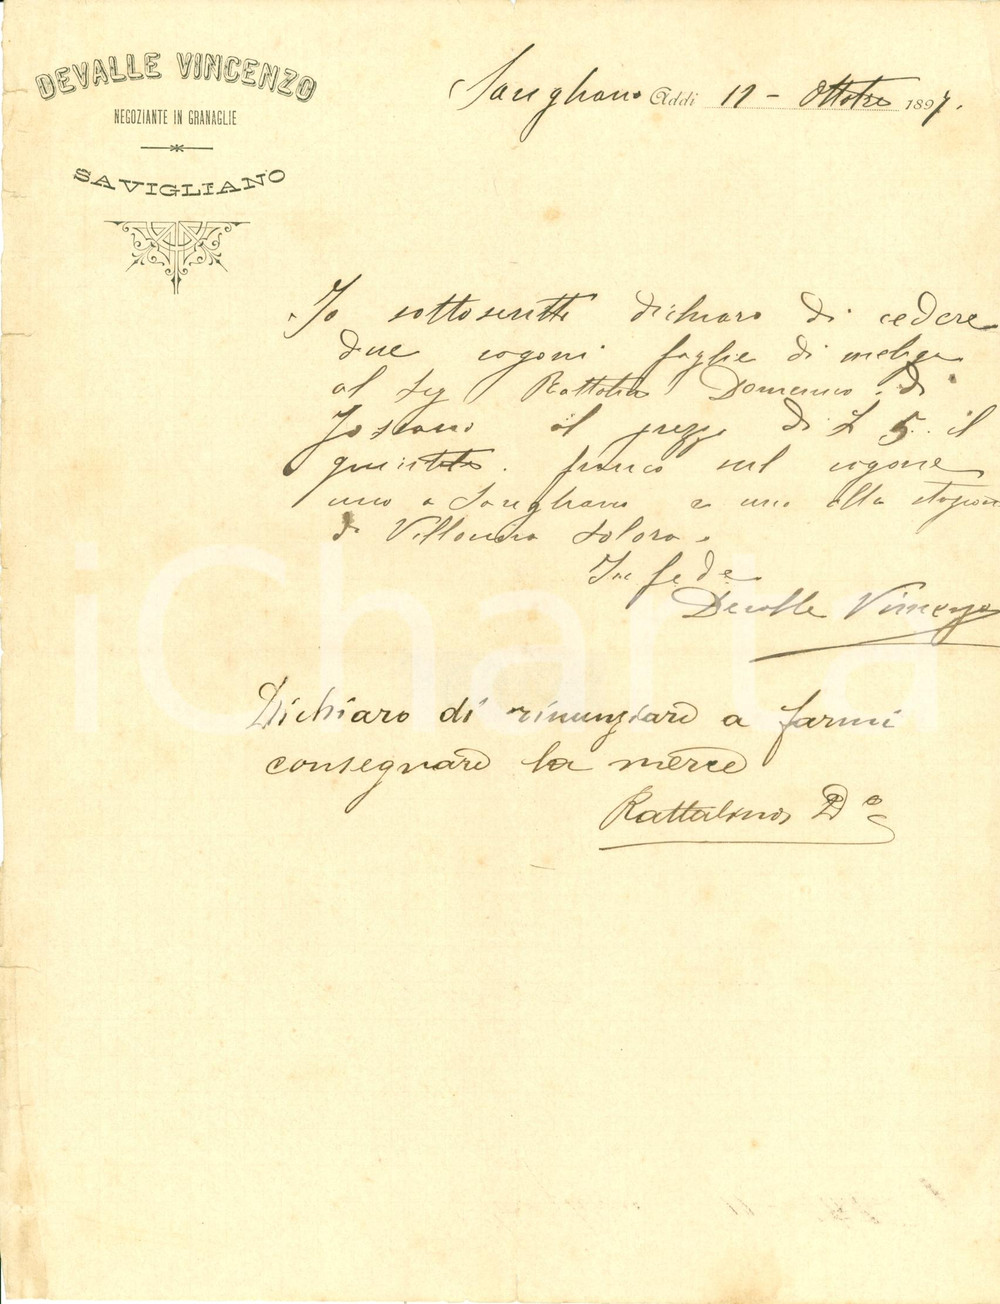 DEVALLE VINCENZO
NEGOZIANTE IN GRANAGLIE
SAVIGLIANO
Savigliano Addi 11 - Ottobre 1897.
Io sottoscritto dichiaro di cedere
due vagoni foglie di meliga
al Sig Rattalin Domenico di
al prezzo di L 5. il
quintale. franco sul vagone
uno a Savigliano e uno alla stazione
di Villanova Solaro.
In fede
Devalle Vincenzo
Dichiaro di rinunziare a farmi
consegnare la merce
Rattalino Do
iCharta